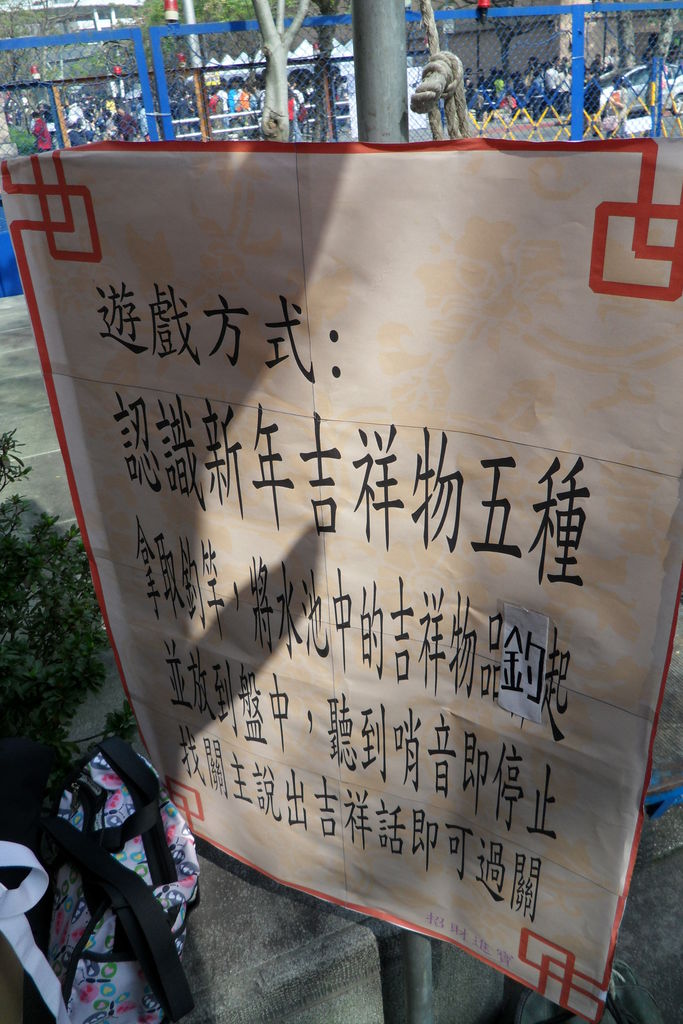 遊戲方式：
認識新年吉祥物五種
拿取釣竿，將水池中的吉祥物品釣起
並放到盤中，聽到哨音即停止
找關主說出吉祥話即可過關
招財進寶